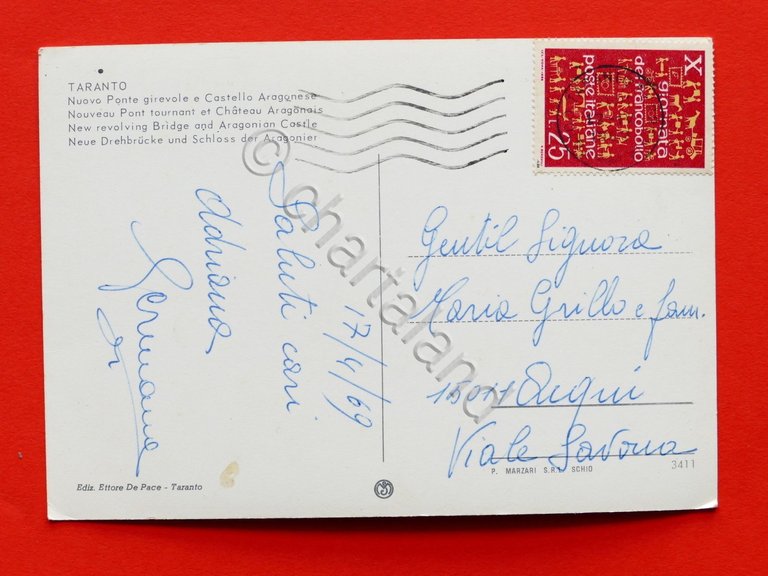 TARANTO
Nuovo Ponte girevole e Castello Aragonese
Nouveau Pont tournant et Château Aragonais
New revolving Bridge and Aragonian Castle
Neue Drehbrücke und Schloss der Aragonier
X giornata
del francobollo
poste italiane
L.25
17/4/69
Saluti cari
Adriana
Germana
Gentil Signora
Maria Grillo e fam.
15011 Acqui
Viale Savona
Ediz. Ettore De Pace - Taranto
P. MARZARI S.R.L. SCHIO
3411
© chartaland